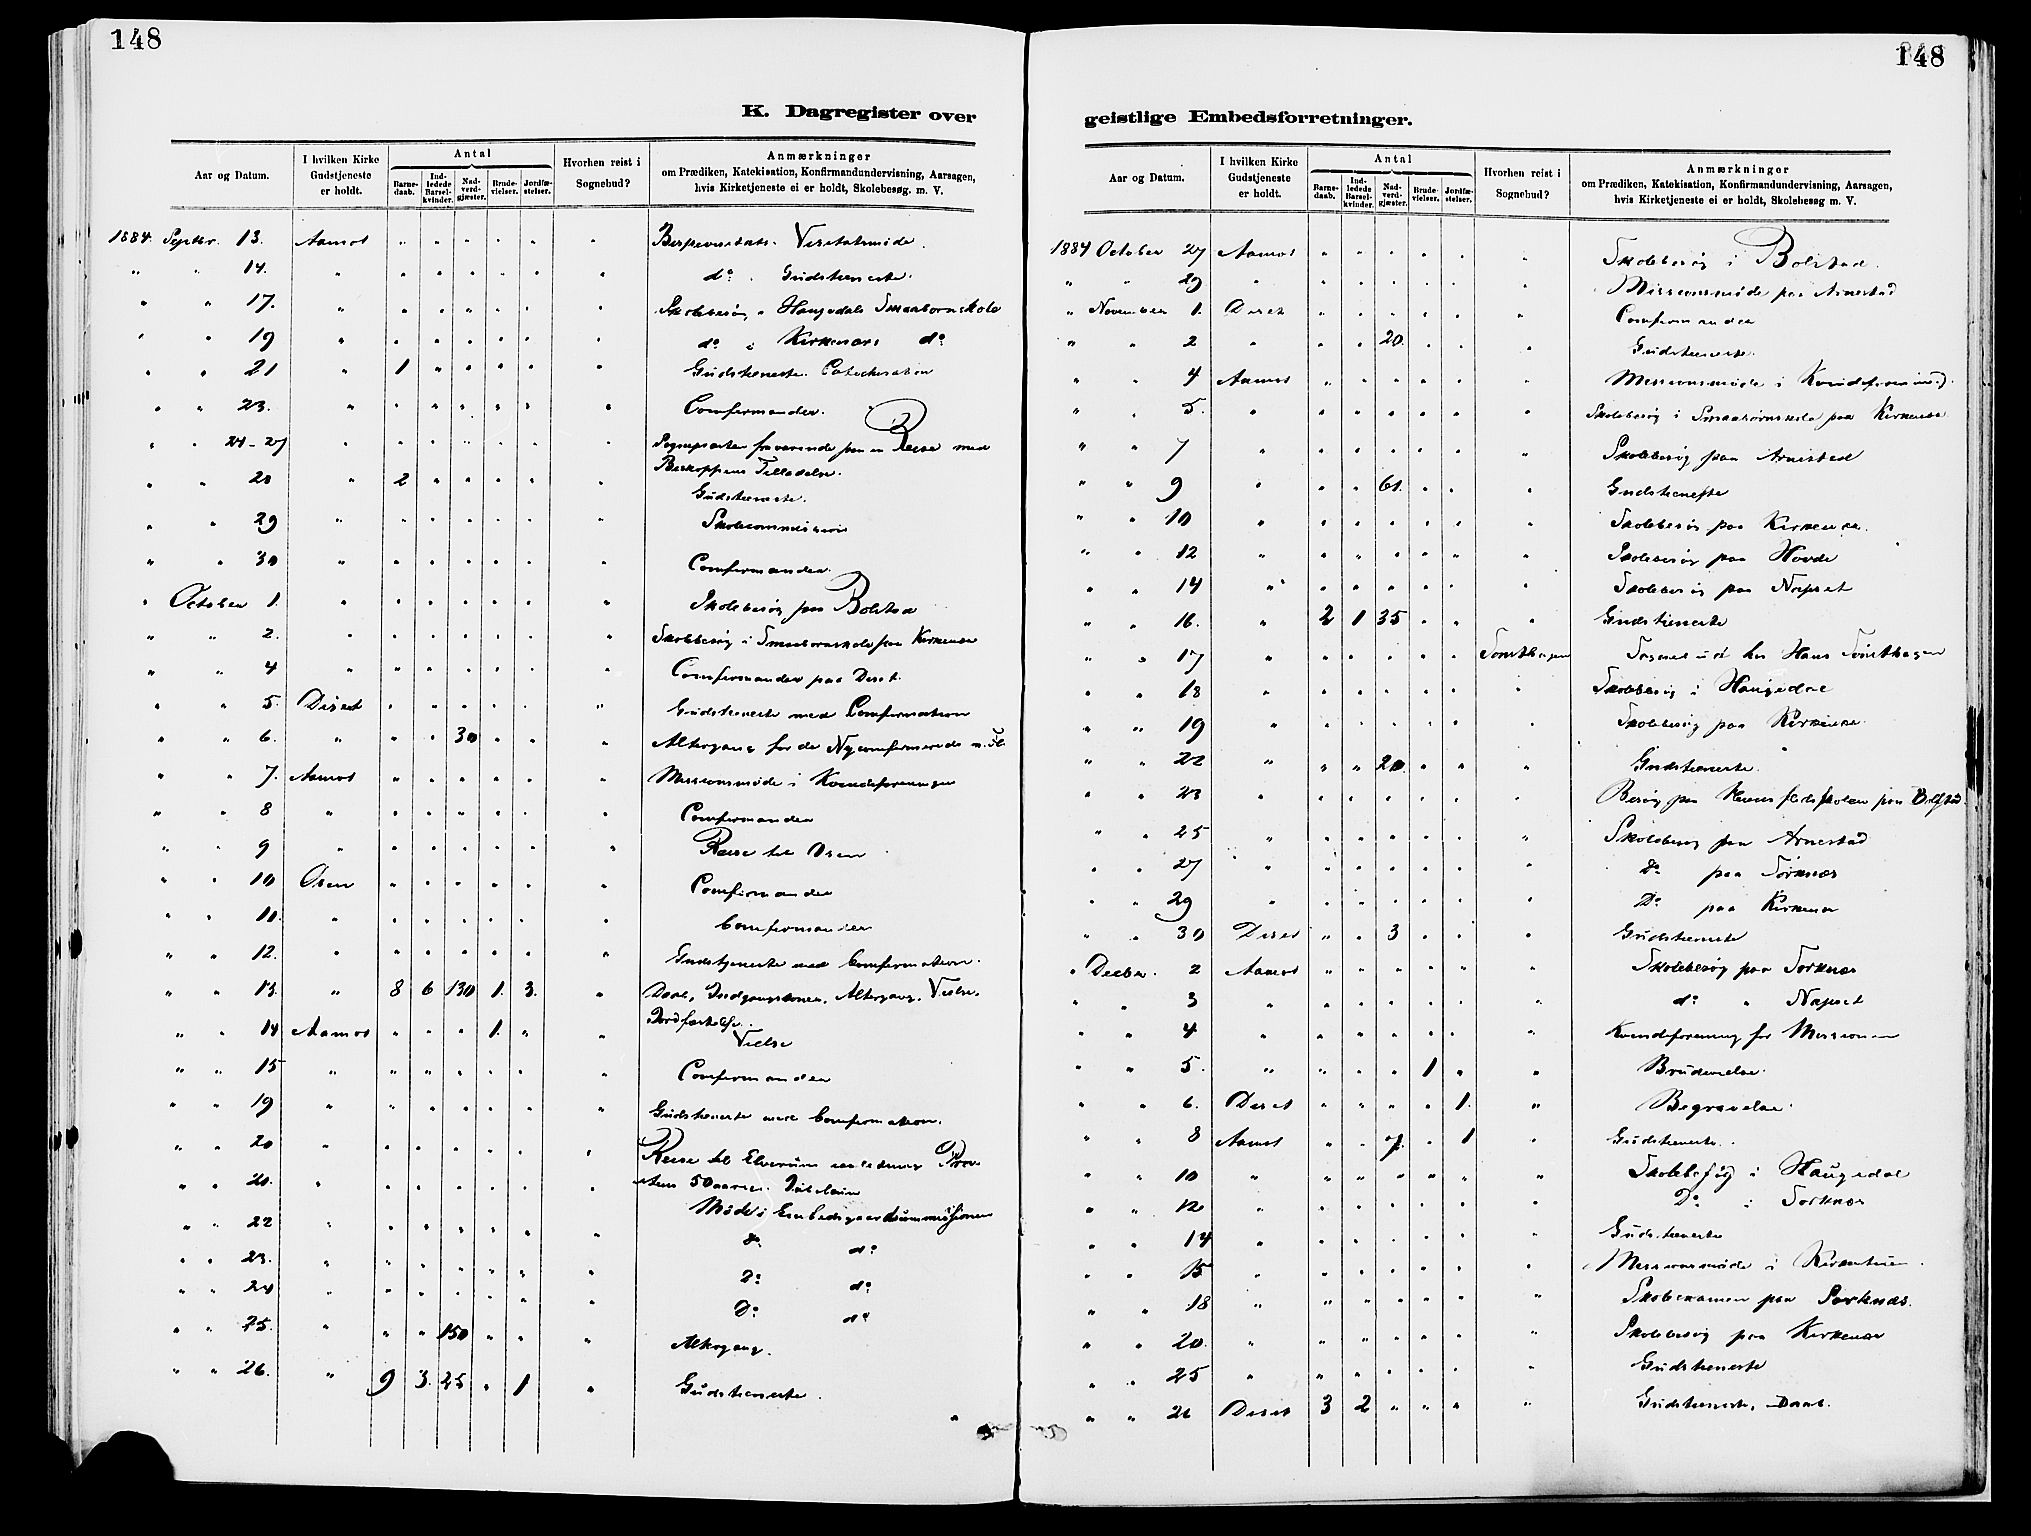 148
K. Dagregister over
Aar og Datum.
I hvilken Kirke Gudstjeneste er holdt.
Antal
Barnedaab.
Indledede Barselkvinder.
Nadverdgjæster.
Brudevielser.
Jordfæstelser.
Hvorhen reist i Sognebud?
Anmærkninger
om Prædiken, Katekisation, Konfirmandundervisning, Aarsagen,
hvis Kirketjeneste ei er holdt, Skolebesøg. m. V.
1884. Septbr. 13. Aamot " " " " " " Bispevisitats. Visitatsmøde.
" " 14. " " " " " " " do. Gudstieneste.
" " 17. " " " " " " " Skolebesøg i Haugedals Smaabornskole
" " 19 " " " " " " " do i Kirkenær do
" " 21 " 1 " " " " " Gudstieneste. Catechisation
" " 23. " " " " " " " Confirmander.
" " 24-27 " " " " " " Sognepresten fraværende paa en Reise med
Biskoppens Tilladelse.
" " 28 " 2 " " " " " Gudstieneste.
" " 29 " " " " " " " Skolecommission
" " 30 " " " " " " " Confirmander.
" October 1. " " " " " " " Skolebesøg paa Bolstad
" " 2. " " " " " " " Skolebesøg i Smaabornskole paa Kirkenær
" " 4 " " " " " " " Confirmander paa Deset.
" " 5. Deset " " " " " " Gudstieneste med Confirmation
" " 6. " " " 30 " " " Altergang for de Nyconfirmerede
" " 7. Aamot " " " " " " Missionsmøde i Kvindeforeningen
" " 8 " " " " " " " Confirmander
" " 9 " " " " " " " Reise til Osen
" " 10 Osen " " " " " " Confirmander
" " 11. " " " " " " " Confirmander
" " 12. " " " " " " " Gudstjeneste med Confirmation.
" " 13. " 8 6 130 1. 3. " Daab, Indgangskoner, Altergang, Vielse,
Jordfæstelse.
" " 14 Aamot " " " 1. " " Vielse
" " 15 " " " " " " " Confirmander
" " 19 " " " " " " " Gudstieneste med Confirmation.
" " 20 " " " " " " " Reise til Elverum
" " 21. " " " " " " " 50aarse. Jubelæum
" " 22 " " " " " " " Møde i Embedsgaardcommissionen
" " 23. " " " " " " " do do
" " 24 " " " " " " " Do do
Do do
" " 25. " " " 150 " " " Altergang.
" " 26. " 9 3. 25 " 1 " Gudstieneste.
148
geistlige Embedsforretninger.
Aar og Datum.
I hvilken Kirke Gudstjeneste er holdt.
Antal
Barnedaab.
Indledede Barselkvinder.
Nadverdgjæster.
Brudevielser.
Jordfæstelser.
Hvorhen reist i Sognebud?
Anmærkninger
om Prædiken, Katekisation, Konfirmandundervisning, Aarsagen,
hvis Kirketjeneste ei er holdt, Skolebesøg m. V.
1884 October 27 Aamot " " " " " " Skolebesøg i Bolstad.
" " 29 " " " " " " " Missionsmøde paa Arnestad
" November 1. Deset " " " " " " Confirmander
" " 2 " " " 20. " " " Gudstieneste.
" " 4 Aamot " " " " " " Missionsmøde i Kvindeforening.
" " 5. " " " " " " " Skolebesøg i Smaabørnskole paa Kirkenær
" " 7 " " " " " " " Skolebesøg paa Arnestad
" " 9 " " " 61. " " " Gudstieneste
" " 10 " " " " " " " Skolebesøg paa Kirkenær.
" " 12 " " " " " " " Skolebesøg paa Hovde
" " 14 " " " " " " " Skolebesøg paa Næpset
" " 16. " 2 1 35 " " " Gudstieneste
" " 17 " " " " " " Tønsthagen Sognebud hos Hans Tønsthagen
" " 18 " " " " " " " Skolebesøg i Haugedal
" " 19 " " " " " " " Skolebesøg paa Kirkenær
" " 22 " " " 20. " " " Gudstieneste.
" " 23 " " " " " " " Besøg paa
" " 25 " " " " " " " Skolebesøg paa Arnestad
" " 27 " " " " " " " Do paa Sorknæs
" " 29 " " " " " " " Do paa Kirkenær
" " 30 Deset " " 3 " " " Gudstieneste
" Decbr. 2 Aamot " " " " " " Skolebesøg paa Sorknæs
" " 3 " " " " " " " do " Næpset
" " 4 " " " " " " " Kvindeforening for Missionen
" " 5. " " " " 1 " " Brudevielse.
" " 6. Deset " " " " 1. " Begravelse.
" " 8 Aamot " " 7. " 1 " Gudstieneste.
" " 10 " " " " " " " Skolebesøg i Haugedal
" " 12 " " " " " " " Do i Sorknæs
" " 14 " " " " " " " Gudstieneste
" " 15 " " " " " " " Missionsmøde i
" " 18 " " " " " " " Skoleexamen paa Sorknæs.
" " 20. " " " " " " " Skolebesøg paa Kirkenær
" " 25 " " " " " " " Gudstieneste
" " 26 Deset 3 2 " " " " Gudstieneste, Daab.